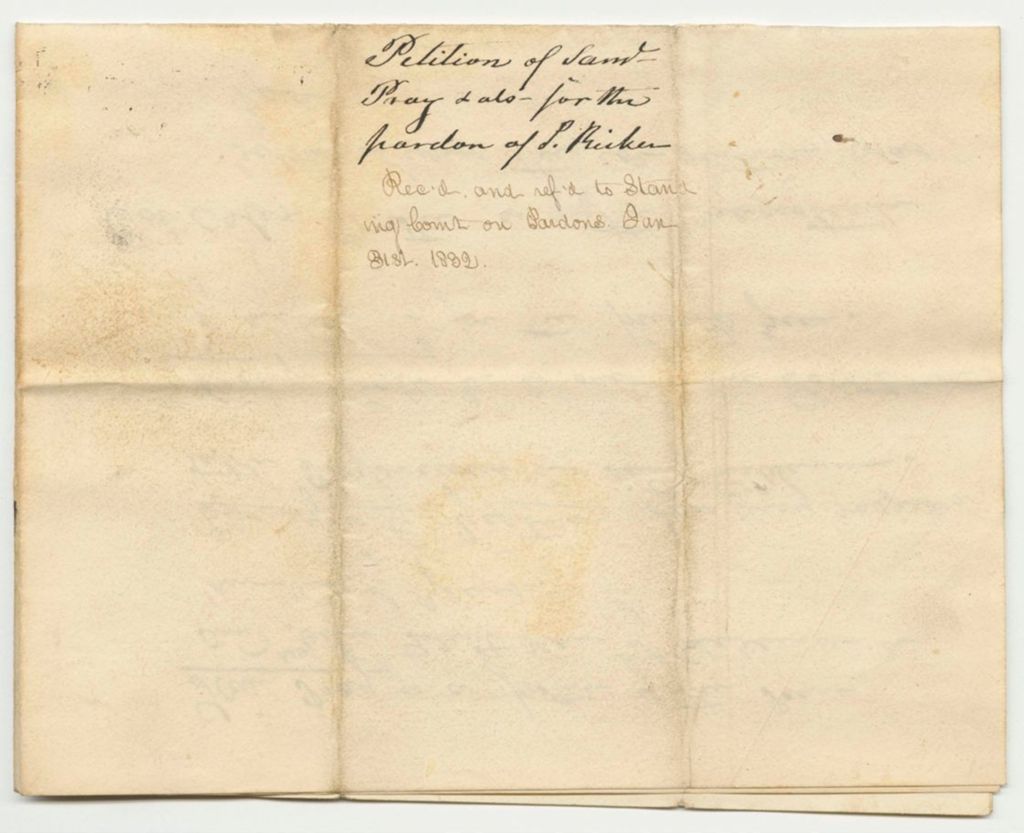 Petition of Saml
Pray & als - for the
pardon of S. Ricker
Rec'd. and ref'd to Stand
ing Comt on Pardons. Jan
31st. 1832.